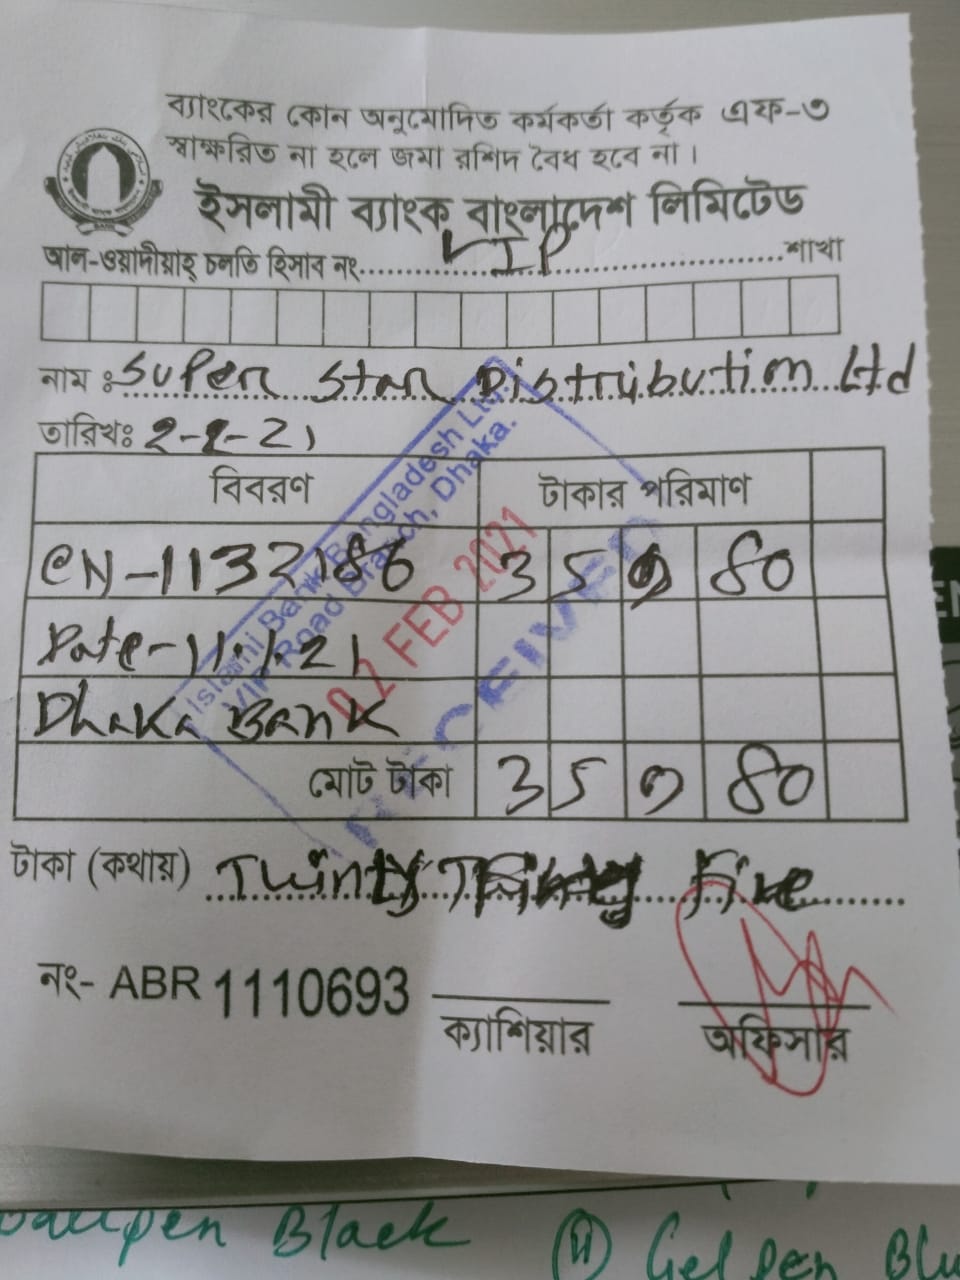 ব্যাংকের কোন অনুমোদিত কর্মকর্তা কর্তৃক এফ-৩
স্বাক্ষরিত না হলে জমা রশিদ বৈধ হবে না।
ইসলামী ব্যাংক বাংলাদেশ লিমিটেড
আল-ওয়াদীয়াহ্ চলতি হিসাব নং.....VIP.....শাখা
নাম : Super Star Distribution Ltd
তারিখঃ 2-2-21
বিবরণ টাকার পরিমাণ
CN-1132186 3 5 9 80
Date-11.1.21
Dhaka Bank
মোট টাকা 3 5 9 80
Islami Bank Bangladesh Ltd.
VIP Road Branch, Dhaka.
02 FEB 2021
RECEIVED
টাকা (কথায়) Five
নং- ABR 1110693
ক্যাশিয়ার অফিসার
Black Gel Pen